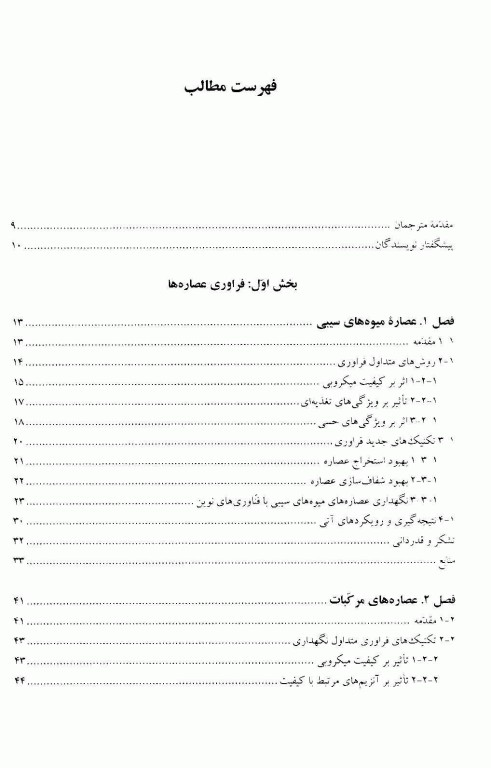 فهرست مطالب
مقدمهٔ مترجمان ........ ۹
پیشگفتار نویسندگان ........ ۱۰
بخش اوّل: فراوری عصاره‌ها
فصل ۱. عصارهٔ میوه‌های سیبی ........ ۱۳
۱-۱ مقدّمه ........ ۱۳
۲-۱ روش‌های متداول فراوری ........ ۱۴
۱-۲-۱ اثر بر کیفیت میکروبی ........ ۱۵
۲-۲-۱ تأثیر بر ویژگی‌های تغذیه‌ای ........ ۱۷
۳-۲-۱ اثر بر ویژگی‌های حسی ........ ۱۸
۳-۱ تکنیک‌های جدید فراوری ........ ۲۰
۱-۳-۱ بهبود استخراج عصاره ........ ۲۱
۲-۳-۱ بهبود شفاف‌سازی عصاره ........ ۲۲
۳-۳-۱ نگهداری عصاره‌های میوه‌های سیبی با فنّاوری‌های نوین ........ ۲۳
۴-۱ نتیجه‌گیری و رویکردهای آتی ........ ۳۰
تشکر و قدردانی ........ ۳۲
منابع ........ ۳۳
فصل ۲. عصاره‌های مرکّبات ........ ۴۱
۱-۲ مقدّمه ........ ۴۱
۲-۲ تکنیک‌های فراوری متداول نگهداری ........ ۴۳
۱-۲-۲ تأثیر بر کیفیت میکروبی ........ ۴۳
۲-۲-۲ تأثیر بر آنزیم‌های مرتبط با کیفیت ........ ۴۴